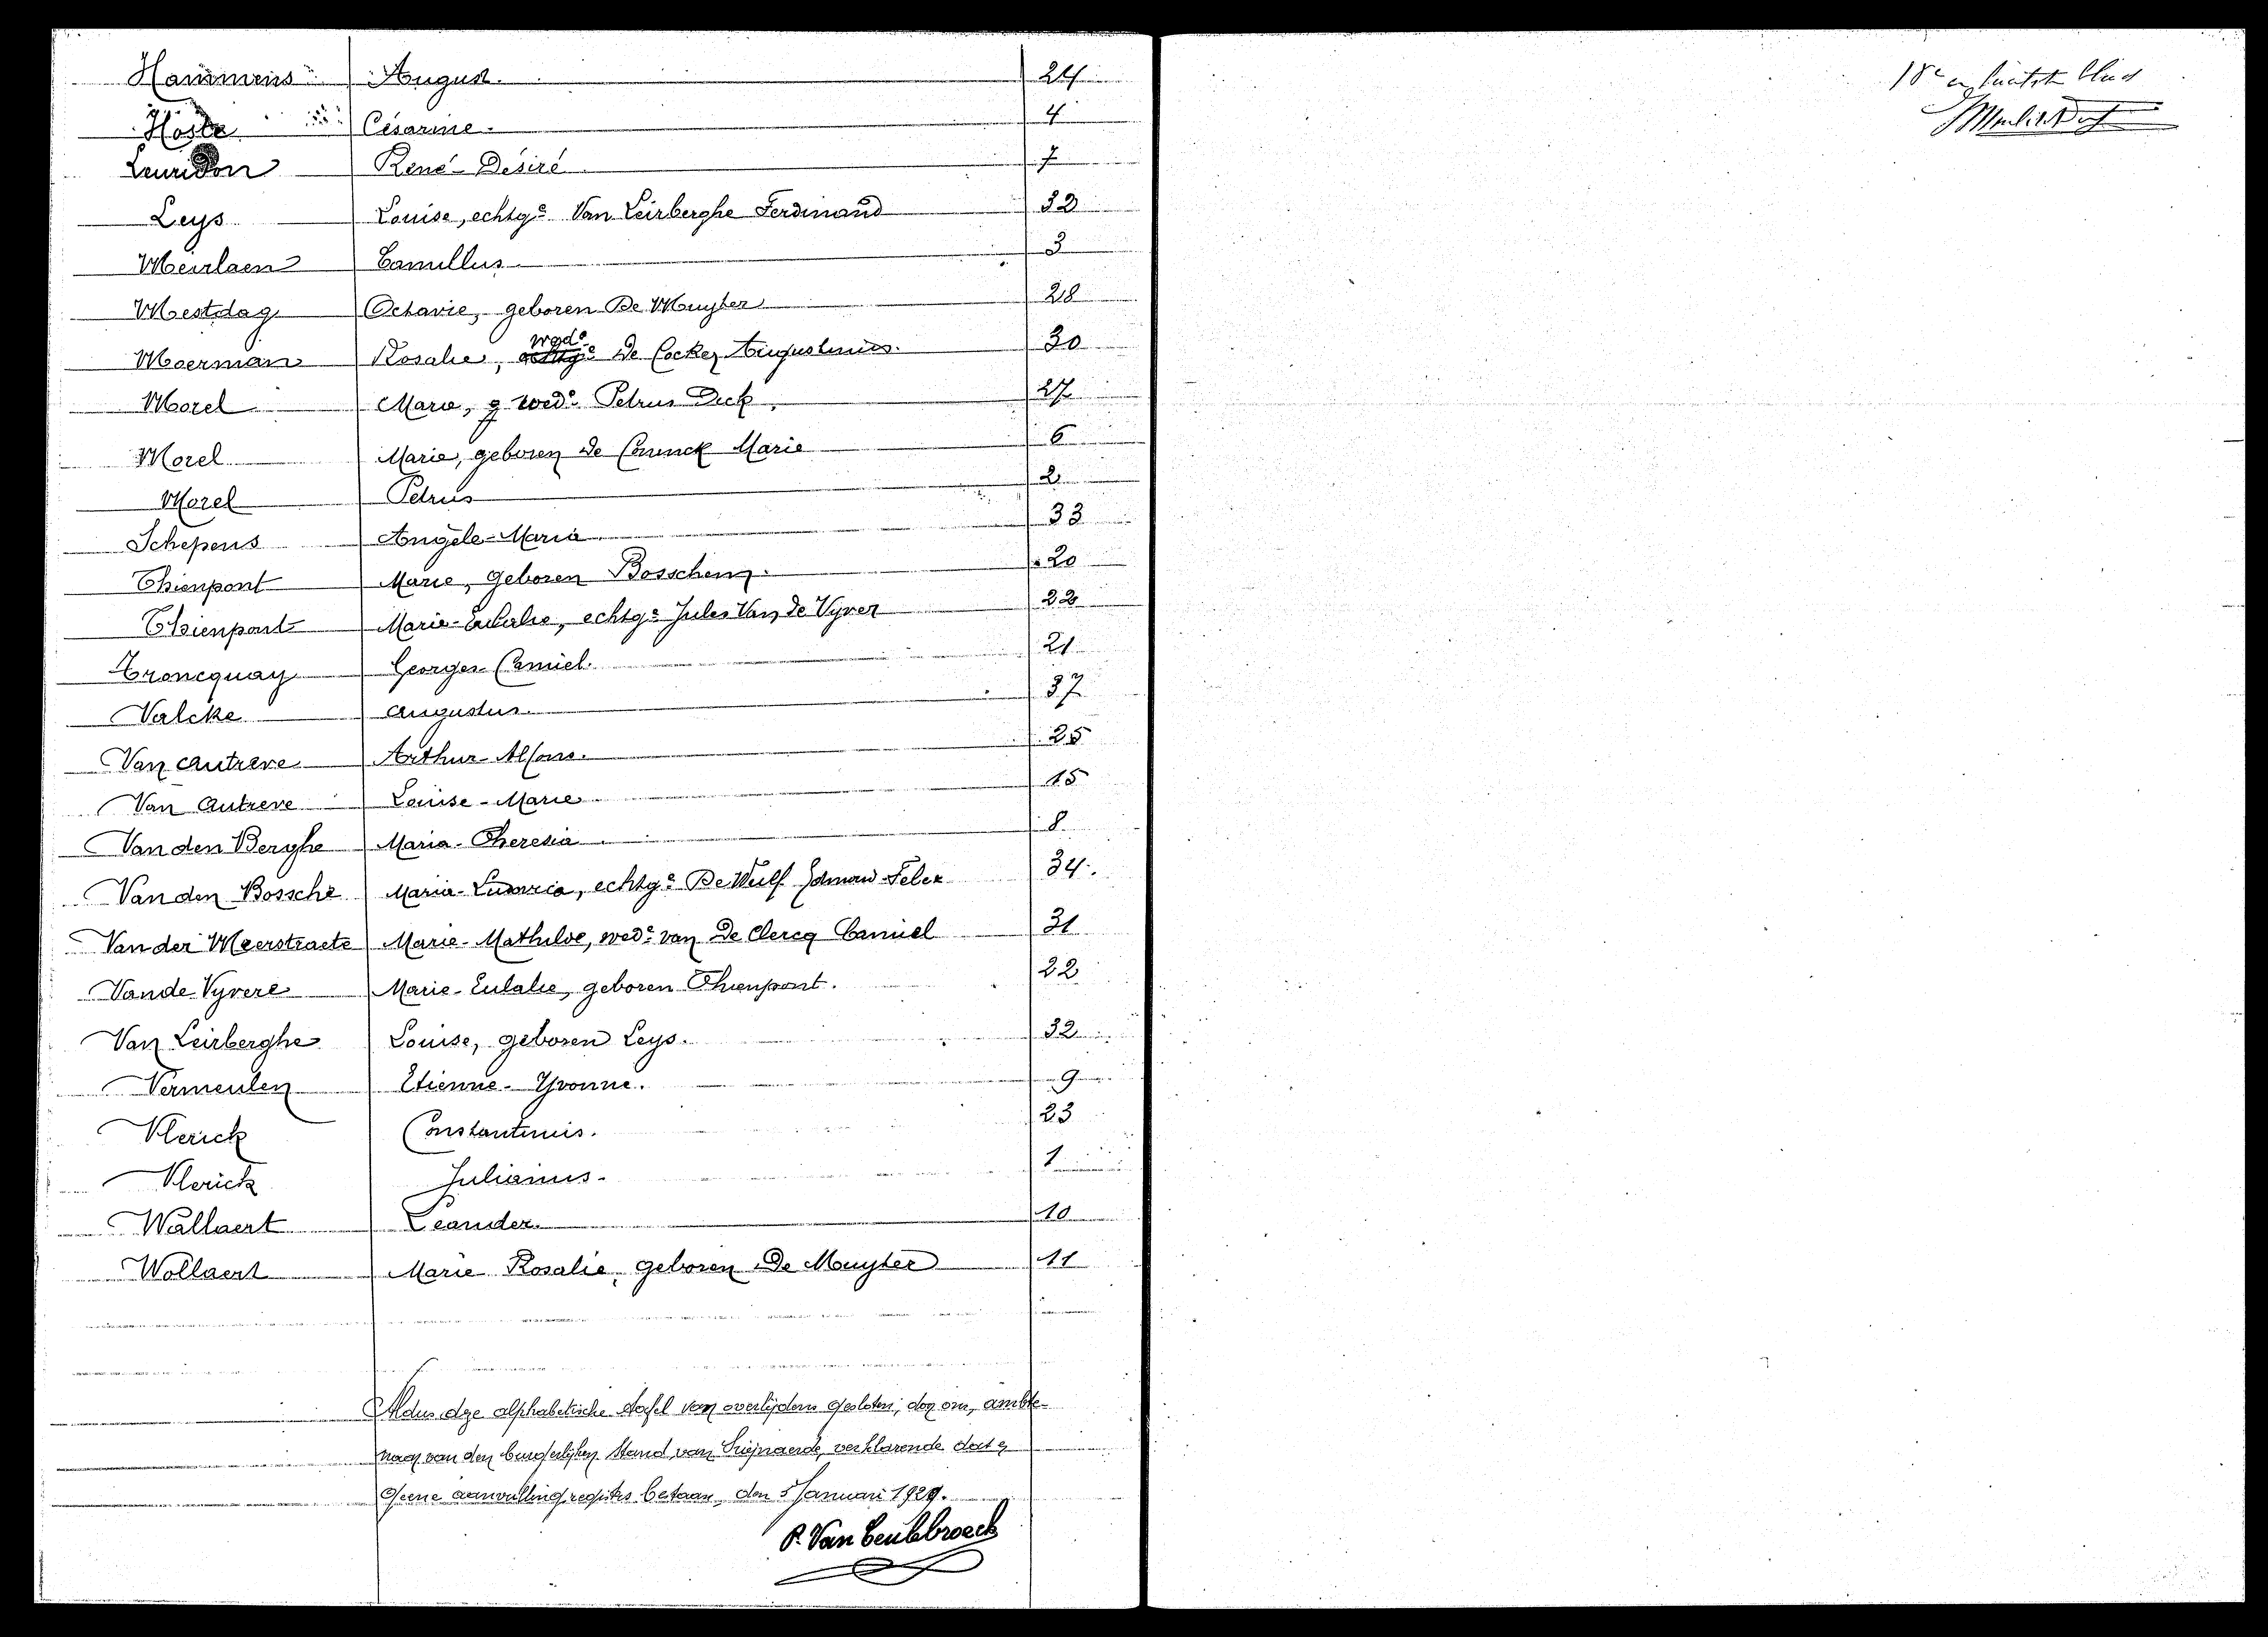 Hammens August. 24
Hoste Césarine. 4
Leuridon René-Desiré 7
Leys Louise, echtgᵉ Van Leirberghe Ferdinand 32
Meirlaen Camillus 3
Mestdag Octavie, geboren De Muyter 28
Moerman Rosalie, wedᵉ De Cocker Augustinus. 30
Morel Marie, wedᵉ Petrus 27
Morel Marie, geboren De Coninck Marie 6
Morel Petrus 2
Schepens Angèle-Maria 33
Thienpont Marie, geboren Bosschem. 20
Thienpont Marie-Eulalie, echtgᵉ Jules Van de Vyver 22
Troncquay Georges Camiel. 21
Valcke Augustus. 37
Van Autreve Arthur Alfons. 25
Van Autreve Louise-Marie 15
Van den Berghe Maria-Theresia 8
Van den Bossche Maria-Ludovica, echtgᵉ De Wulf Edmond-Felix 34.
Van der Meerstraete Marie-Mathilde, wedᵉ van De Clercq Camiel 31
Van de Vyvere Marie-Eulalie, geboren Thienpont. 22
Van Leirberghe Louise, geboren Leys. 32
Vermeulen Etienne-Yvonne. 9
Vlerick Constantinus. 23
Vlerick Julianus. 1
Wallaert Leander. 10
Wallaert Marie Rosalie, geboren De Muyter 11
Aldus deze alphabetische tafel van overlijdens gesloten, door ons, ambte-
naar van den burgerlijken stand van Swijnaerde, verklarende dat er
geene aanvullingregisters bestaan, den 5 Januari 1929.
P. Van Ceulebroeck
18ᵉ en laatste blad